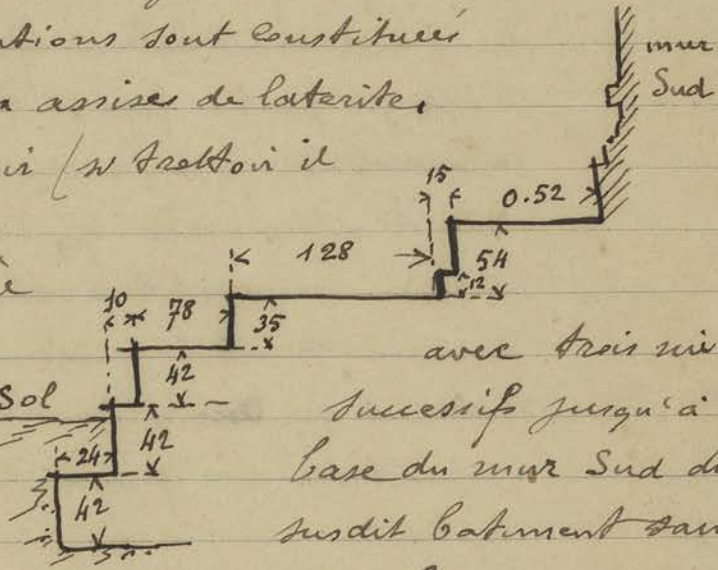 ations sont constituées
assises de laterite,
ir (si trottoir il
mur
Sud
15
0.52
128
54
12
10
78
35
42
avec trois
Sol
successifs jusqu'à
24
42
base du mur Sud d
42
susdit batiment san